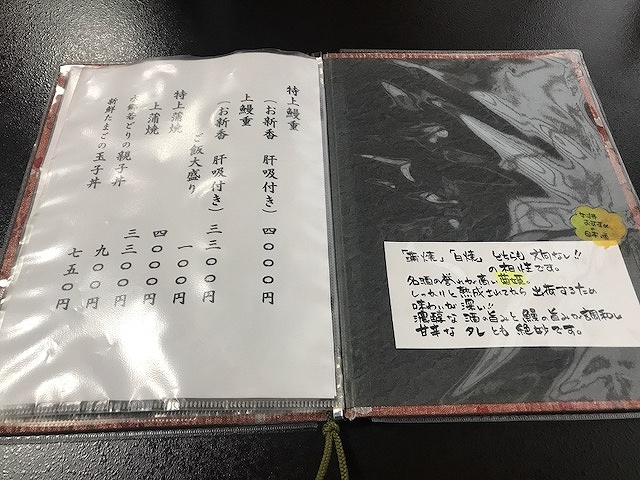 特上鰻重
(お新香 肝吸付き) 四〇〇〇円
上鰻重
(お新香 肝吸付き) 三三〇〇円
ご飯大盛り 一〇〇円
特上蒲焼 四〇〇〇円
上蒲焼 三三〇〇円
若どりの親子丼 九〇〇円
新鮮たまごの玉子丼 七五〇円
おすすめ
日本酒
「蒲焼」「白焼」どちらも文句なし!!
の相性です。
名酒の誉れが高い
しっかりと熟成されてから出荷するため
味わいが深い!!
濃醇な酒の旨みと鰻の旨みが調和し
甘辛なタレとも絶妙です。